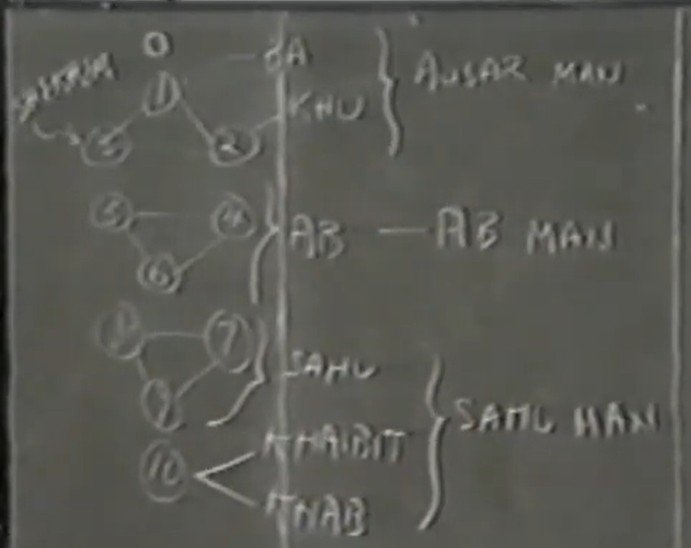 0 — BA } AUSAR MAN
1
KHU
3 2
5 4
AB — AB MAN
6
8 7
SAHU
9
SAHU MAN
10
KHAIBIT
KHAB